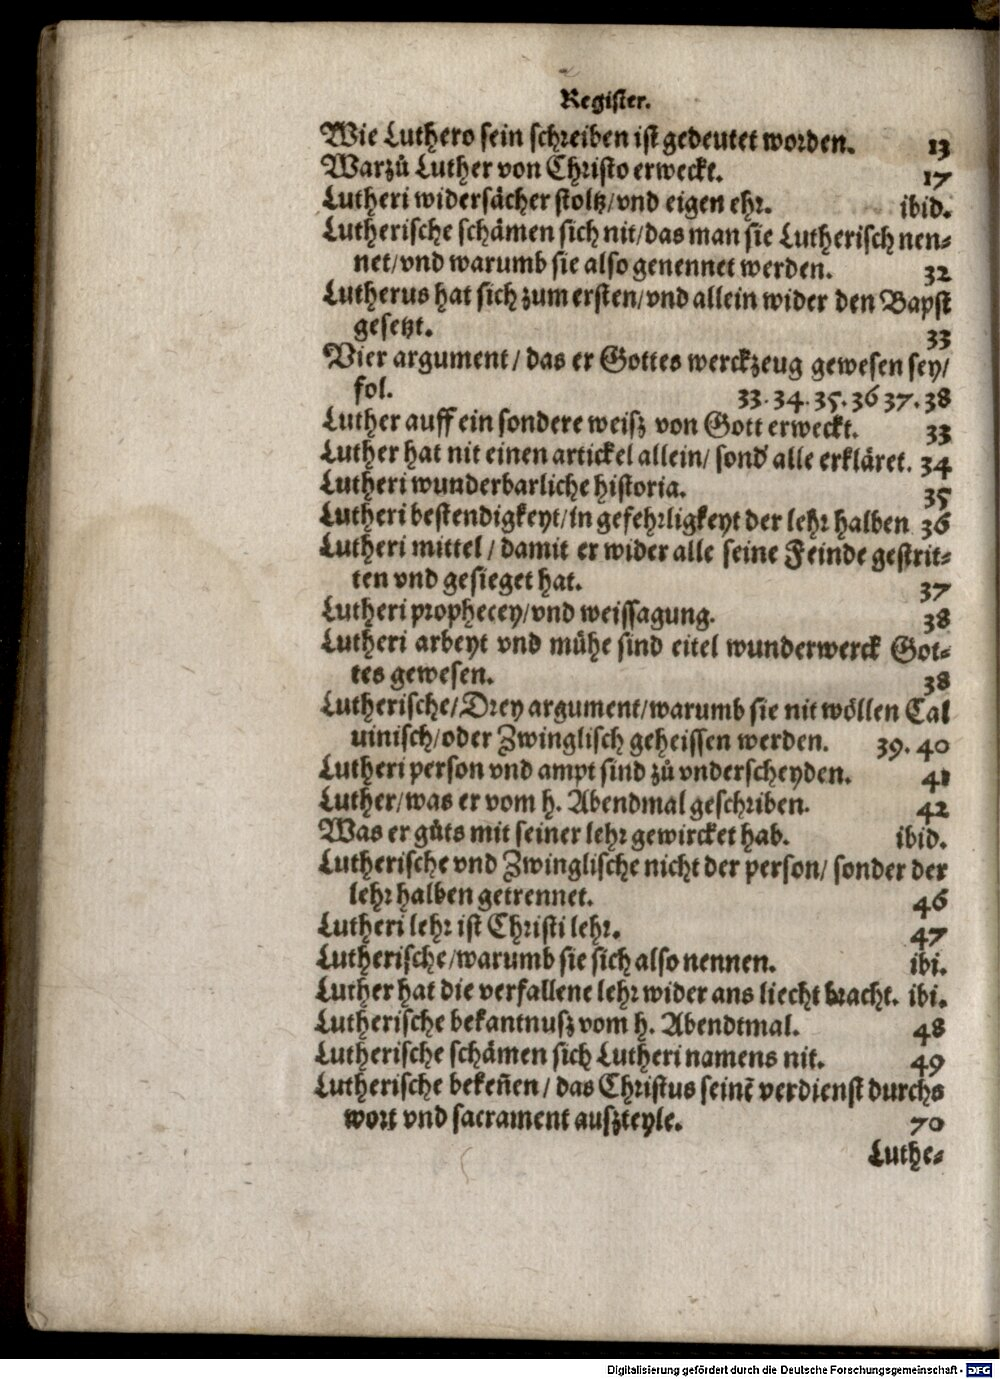 Register.
Wie Luthero sein schreiben ist gedeutet worden. 13
Warzů Luther von Christo erweckt. 17
Lutheri widersächer stoltz/vnd eigen ehr. ibid.
Lutherische schämen sich nit/das man sie Lutherisch nen⸗
net/vnd warumb sie also genennet werden. 32
Lutherus hat sich zum ersten/vnd allein wider den Bapst
gesetzt. 33
Vier argument/ das er Gottes werckzeug gewesen sey/
fol. 33.34.35.36 37.38
Luther auff ein sondere weisz von Gott erweckt. 33
Luther hat nit einen artickel allein/ sond' alle erkläret. 34
Lutheri wunderbarliche historia. 35
Lutheri bestendigkeyt/in gefehrligkeyt der lehr halben 36
Lutheri mittel/ damit er wider alle seine Feinde gestrit⸗
ten vnd gesieget hat. 37
Lutheri prophecey/vnd weissagung. 38
Lutheri arbeyt vnd mühe sind eitel wunderwerck Got⸗
tes gewesen. 38
Lutherische/Drey argument/warumb sie nit wöllen Cal
uinisch/oder Zwinglisch geheissen werden. 39.40
Lutheri person vnd ampt sind zů vnderscheyden. 41
Luther/was er vom h. Abendmal geschriben. 42
Was er gůts mit seiner lehr gewircket hab. ibid.
Lutherische vnd Zwinglische nicht der person/ sonder der
lehr halben getrennet. 46
Lutheri lehr ist Christi lehr. 47
Lutherische/warumb sie sich also nennen. ibi.
Luther hat die verfallene lehr wider ans liecht bracht. ibi.
Lutherische bekantnusz vom h. Abendtmal. 48
Lutherische schämen sich Lutheri namens nit. 49
Lutherische bekeñen/ das Christus seinẽ verdienst durchs
wort vnd sacrament auszteyle. 70
Luthe⸗
Digitalisierung gefördert durch die Deutsche Forschungsgemeinschaft - DFG